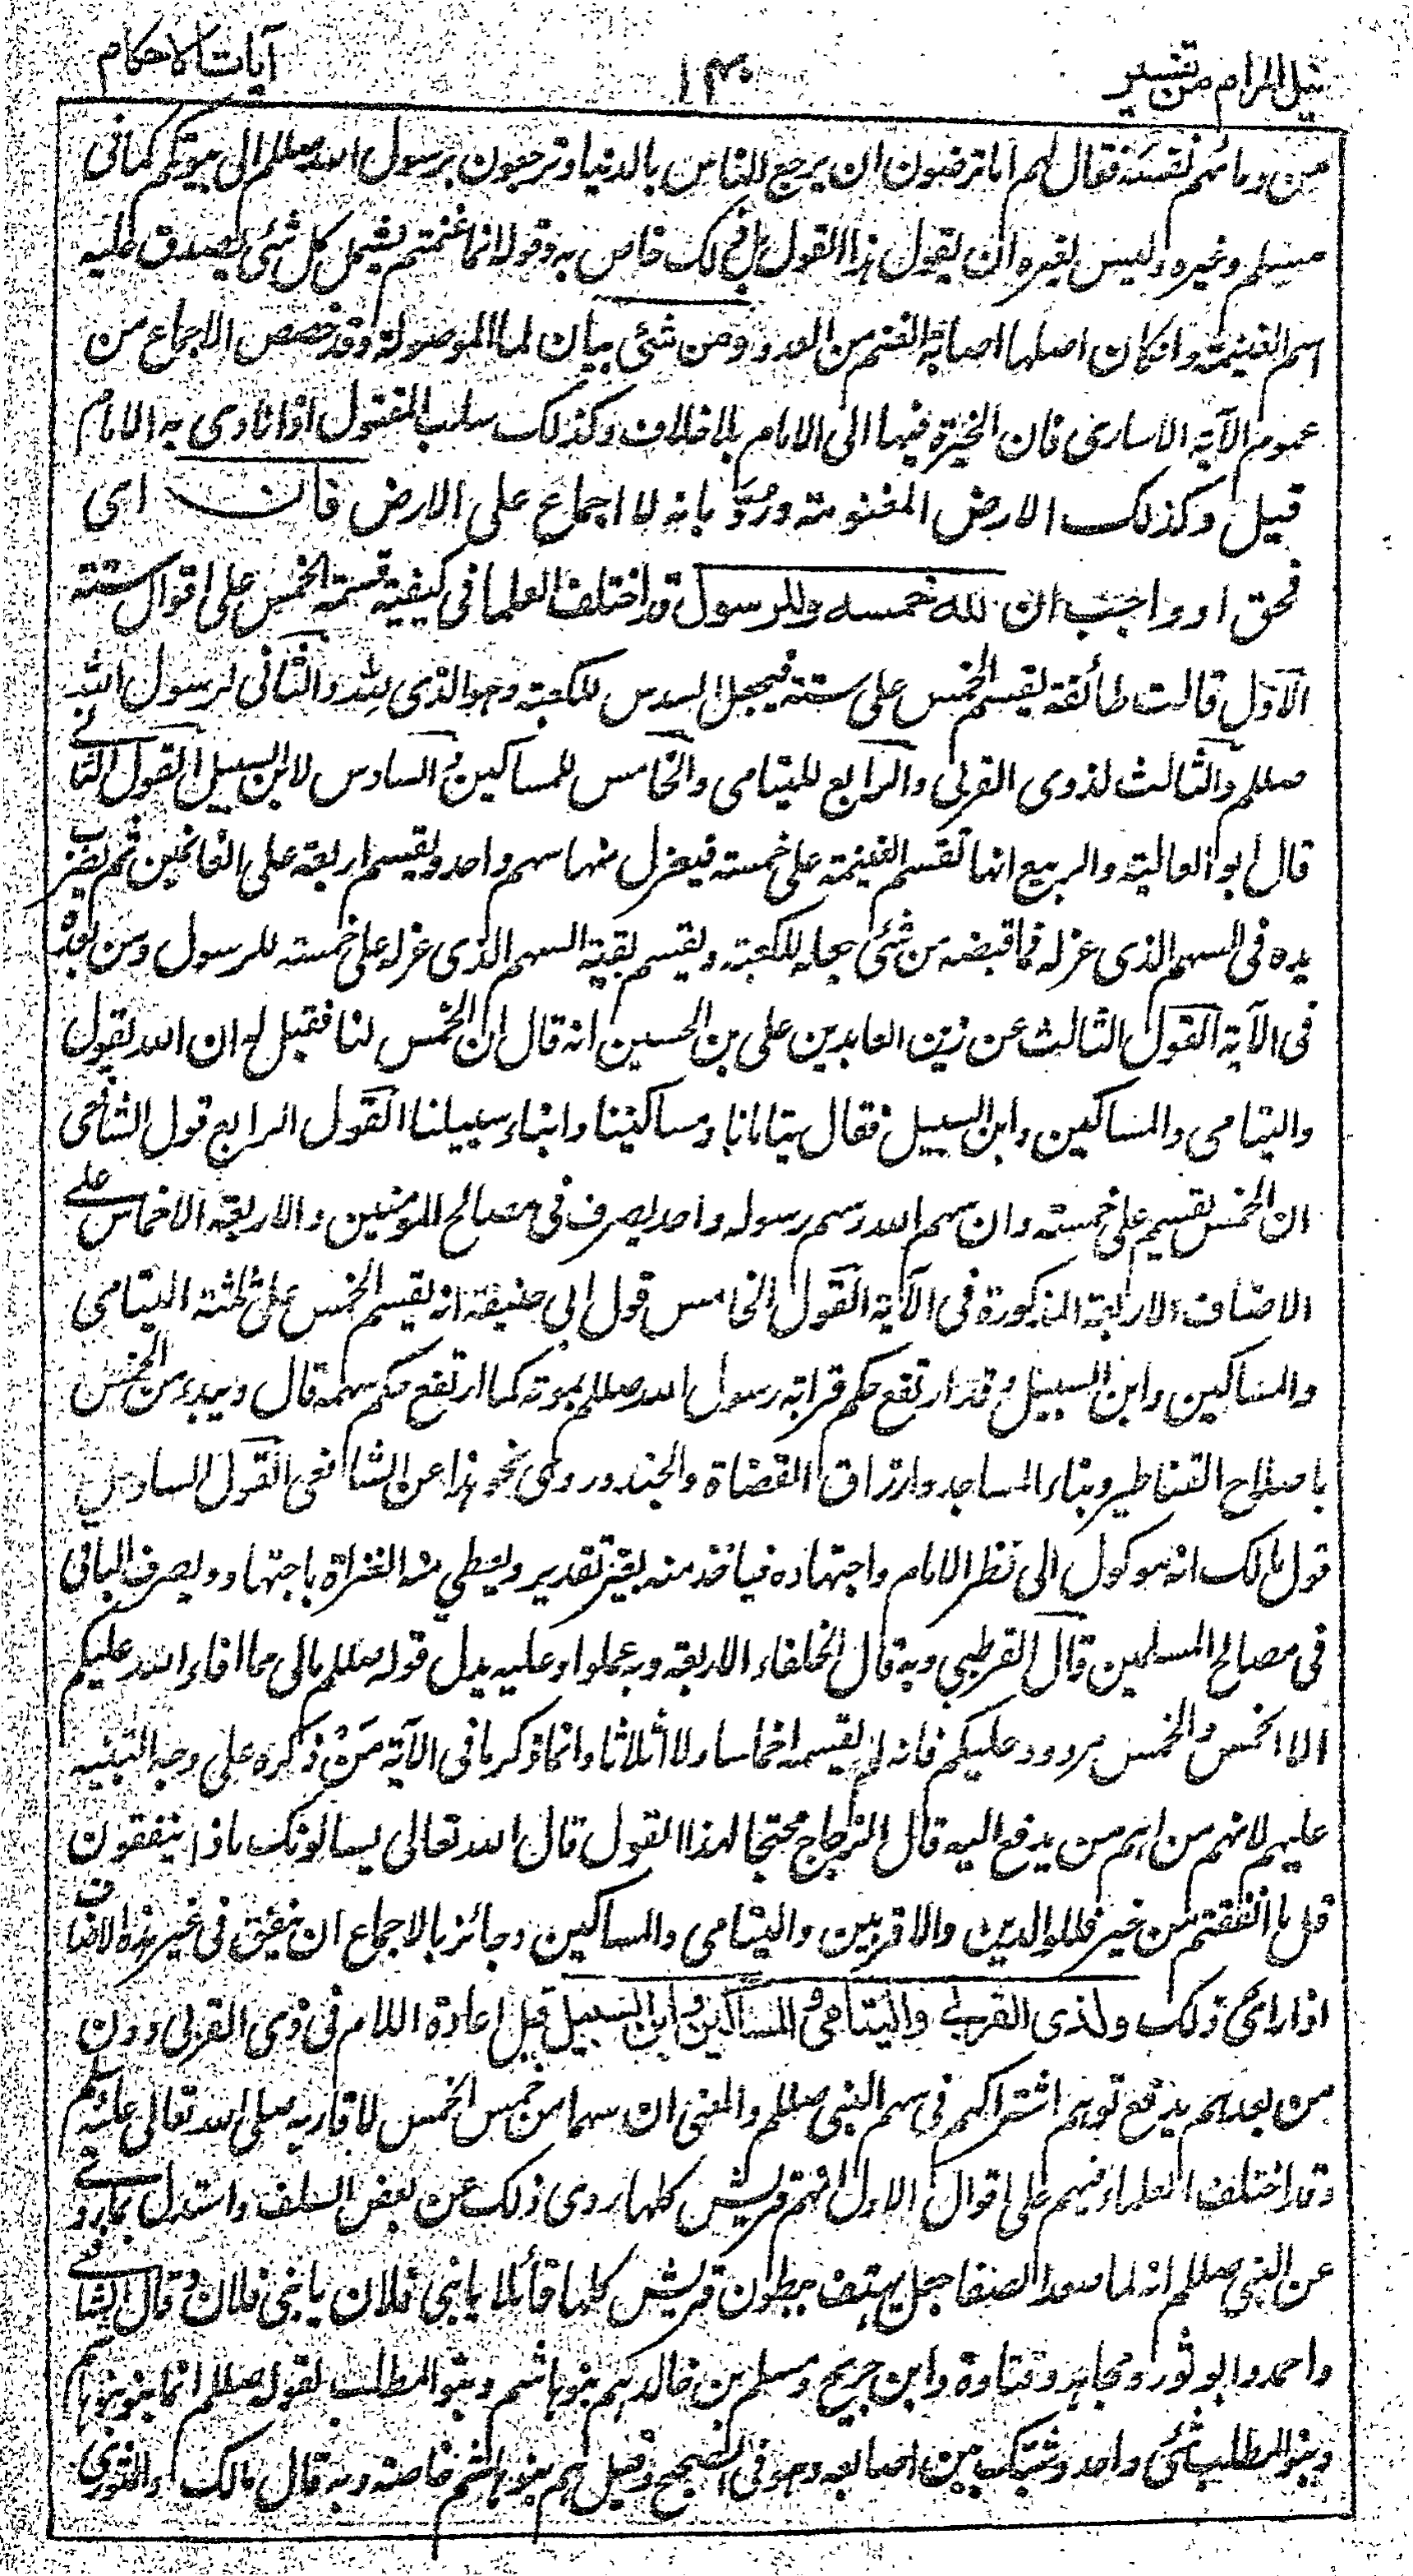 نيل المرام من تفسير ١٤٠ آيات الاحكام
من دمائهم نفسه فقال لهم اما ترضون ان يرجع الناس بالدنيا وترجعون برسول الله صللم الى بيوتكم كما في
مسلم وغيره وليس لغيره ان يقول هذا القول بل ذلك خاص به وقوله انما غنمتم يشمل كل شئ يصدق عليه
اسم الغنيمة وانكان اصلها اصابة الغنم من العدو ومن شئ بيان لما الموصولة وقد خصص الاجماع من
عموم الآية الاسارى فان الخيرة فيها الى الامام بلا خلاف وكذلك سلب المقتول اذا نادى به الامام
قيل وكذلك الارض المغنومة ورُدَّ بانه لا اجماع على الارض فان اى
فحق او واجب ان لله خمسه وللرسول قد اختلف العلما في كيفية قسمة الخمس على اقوال ستة
الاول قالت طائفة يقسم الخمس على ستة فيجعل السدس للكعبة وهو الذى لله والثانى لرسول الله
صللم والثالث لذوى القربى والرابع لليتامى والخامس للمساكين والسادس لابن السبيل القول الثانى
قال ابو العالية والربيع انها تقسم الغنيمة على خمسة فيعزل منها سهم واحد ويقسم اربعة على الغانمين ثم يضرب
يده في السهم الذى عزله فما قبضه من شئ جعله للكعبة ويقسم بقية السهم الذى عزله على خمسة للرسول ومن بعده
في الآية القول الثالث عن زين العابدين على بن الحسين انه قال ان الخمس لنا فقيل له ان الله يقول
واليتامى والمساكين وابن السبيل فقال يتامانا ومساكيننا وابناء سبيلنا القول الرابع قول الشافعى
ان الخمس يقسم على خمسة وان سهم الله وسهم رسوله واحد يصرف في مصالح المؤمنين والاربعة الاخماس على
الاصناف الاربعة المذكورة في الآية القول الخامس قول ابى حنيفة انه يقسم الخمس على ثلثة اليتامى
والمساكين وابن السبيل وقد ارتفع حكم قرابة رسول الله صللم بموته كما ارتفع حكم سهمه قال ويبدء من الخمس
باصلاح القناطير وبناء المساجد وارزاق القضاة والجند وروى نحو هذا عن الشافعى القول السادس
قول مالك انه موكول الى نظر الامام واجتهاده فياخذ منه بغير تقدير ويعطي منه الغزاة باجتهاد ويصرف الباقى
في مصالح المسلمين قال القرطبي وبه قال الخلفاء الاربعة وبه عملوا وعليه يدل قوله صللم مالى مما افاء الله عليكم
الا الخمس والخمس مردود عليكم فانه لم يقسمه اخماسا ولا اثلاثا وانما ذكر ما في الآية مَنْ ذكره على وجه التنبيه
عليهم لانهم من اهم من يدفع اليه قال الزجاج محتجا لهذا القول قال الله تعالى يسالونك ماذا ينفقون
قل ما انفقتم من خير فللوالدين والاقربين واليتامى والمساكين وجائز بالاجماع ان ينفق في غير هذه الاصناف
اذا راى ذلك ولذى القربى واليتامى والمساكين وابن السبيل قيل اعادة اللام في ذى القربى دون
من بعدهم يدفع توهم اشتراكهم في سهم النبى صللم والمعنى ان سهما من خمس الخمس لاقاربه صلى الله تعالى عليه وسلم
وقد اختلف العلماء فيهم على اقوال الاول انهم قريش كلها روى ذلك عن بعض السلف واستدل بما روى
عن النبى صللم انه لما صعد الصفا جعل يهتف ببطون قريش كلها قائلا يا بنى فلان يا بنى فلان وقال الشافعى
واحمد وابو ثور ومجاهد وقتادة وابن جريج ومسلم بن خالد هم بنو هاشم وبنو المطلب لقوله صللم انما بنو هاشم
وبنو المطلب شئ واحد وشبك بين اصابعه وهو في الصحيح وقيل هم بنو هاشم خاصة وبه قال مالك والثورى